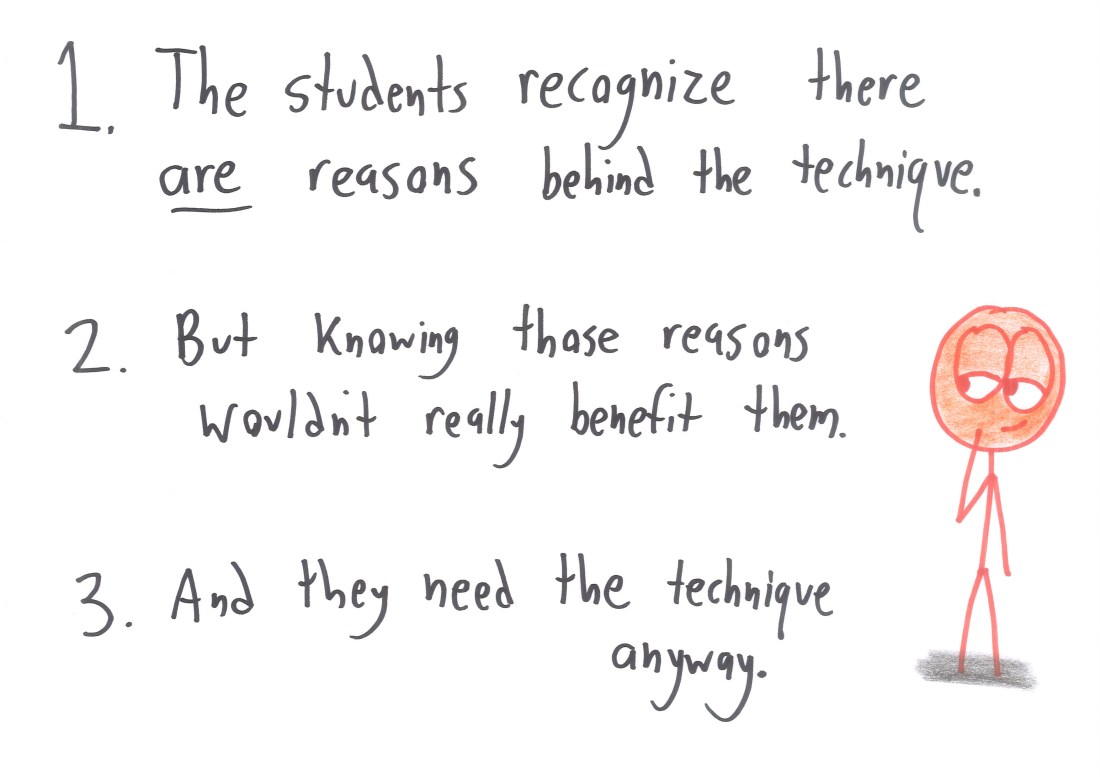 1. The students recognize there
are reasons behind the technique.
2. But knowing those reasons
wouldn't really benefit them.
3. And they need the technique
anyway.